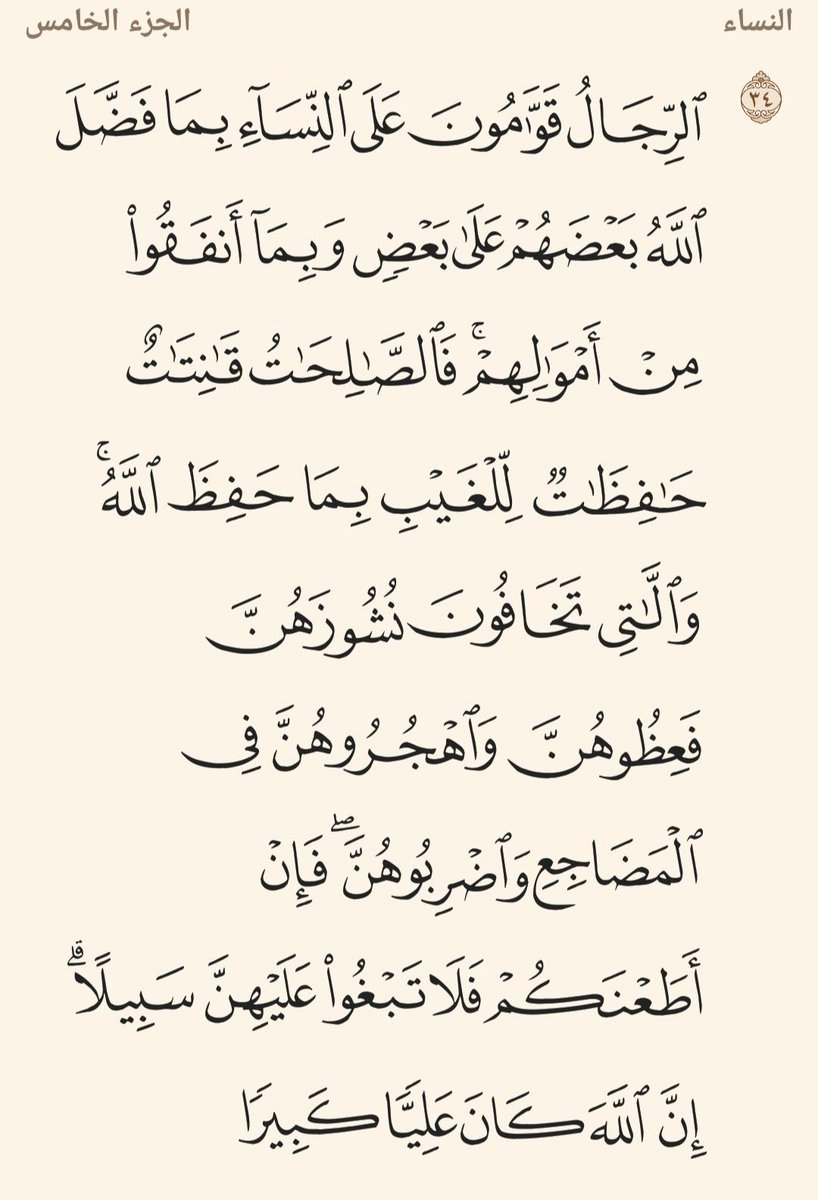 النساء الجزء الخامس
٣٤ ٱلرِّجَالُ قَوَّٰمُونَ عَلَى ٱلنِّسَآءِ بِمَا فَضَّلَ
ٱللَّهُ بَعْضَهُمْ عَلَىٰ بَعْضٍ وَبِمَآ أَنفَقُوا۟
مِنْ أَمْوَٰلِهِمْ ۚ فَٱلصَّـٰلِحَـٰتُ قَـٰنِتَـٰتٌ
حَـٰفِظَـٰتٌ لِّلْغَيْبِ بِمَا حَفِظَ ٱللَّهُ ۚ
وَٱلَّـٰتِى تَخَافُونَ نُشُوزَهُنَّ
فَعِظُوهُنَّ وَٱهْجُرُوهُنَّ فِى
ٱلْمَضَاجِعِ وَٱضْرِبُوهُنَّ ۖ فَإِنْ
أَطَعْنَكُمْ فَلَا تَبْغُوا۟ عَلَيْهِنَّ سَبِيلًا ۗ
إِنَّ ٱللَّهَ كَانَ عَلِيًّا كَبِيرًا